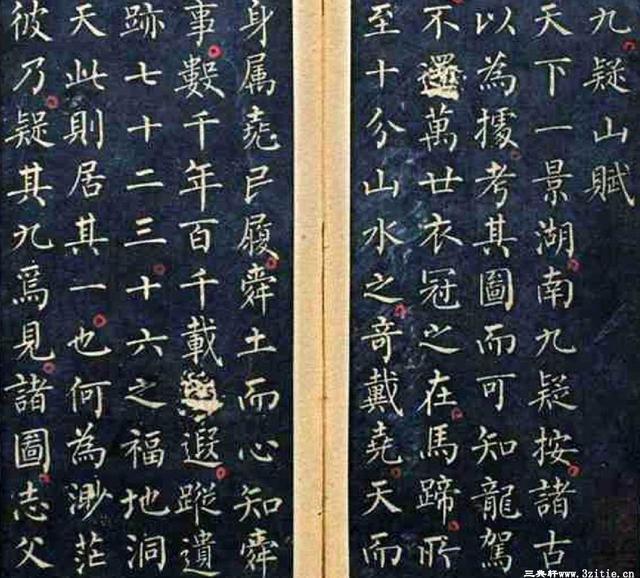 九疑山賦
天下一景湖南九疑按諸古
以為據考其圖而可知龍駕
不還萬世衣冠之在馬蹄所
至十分山水之奇戴堯天而
身属堯民履舜土而心知舜
事數千年百千載遐蹤遺
跡七十二三十六之福地洞
天此則居其一也何為渺茫
彼乃疑其九焉見諸圖志父
三典轩 www.3zitie.cn